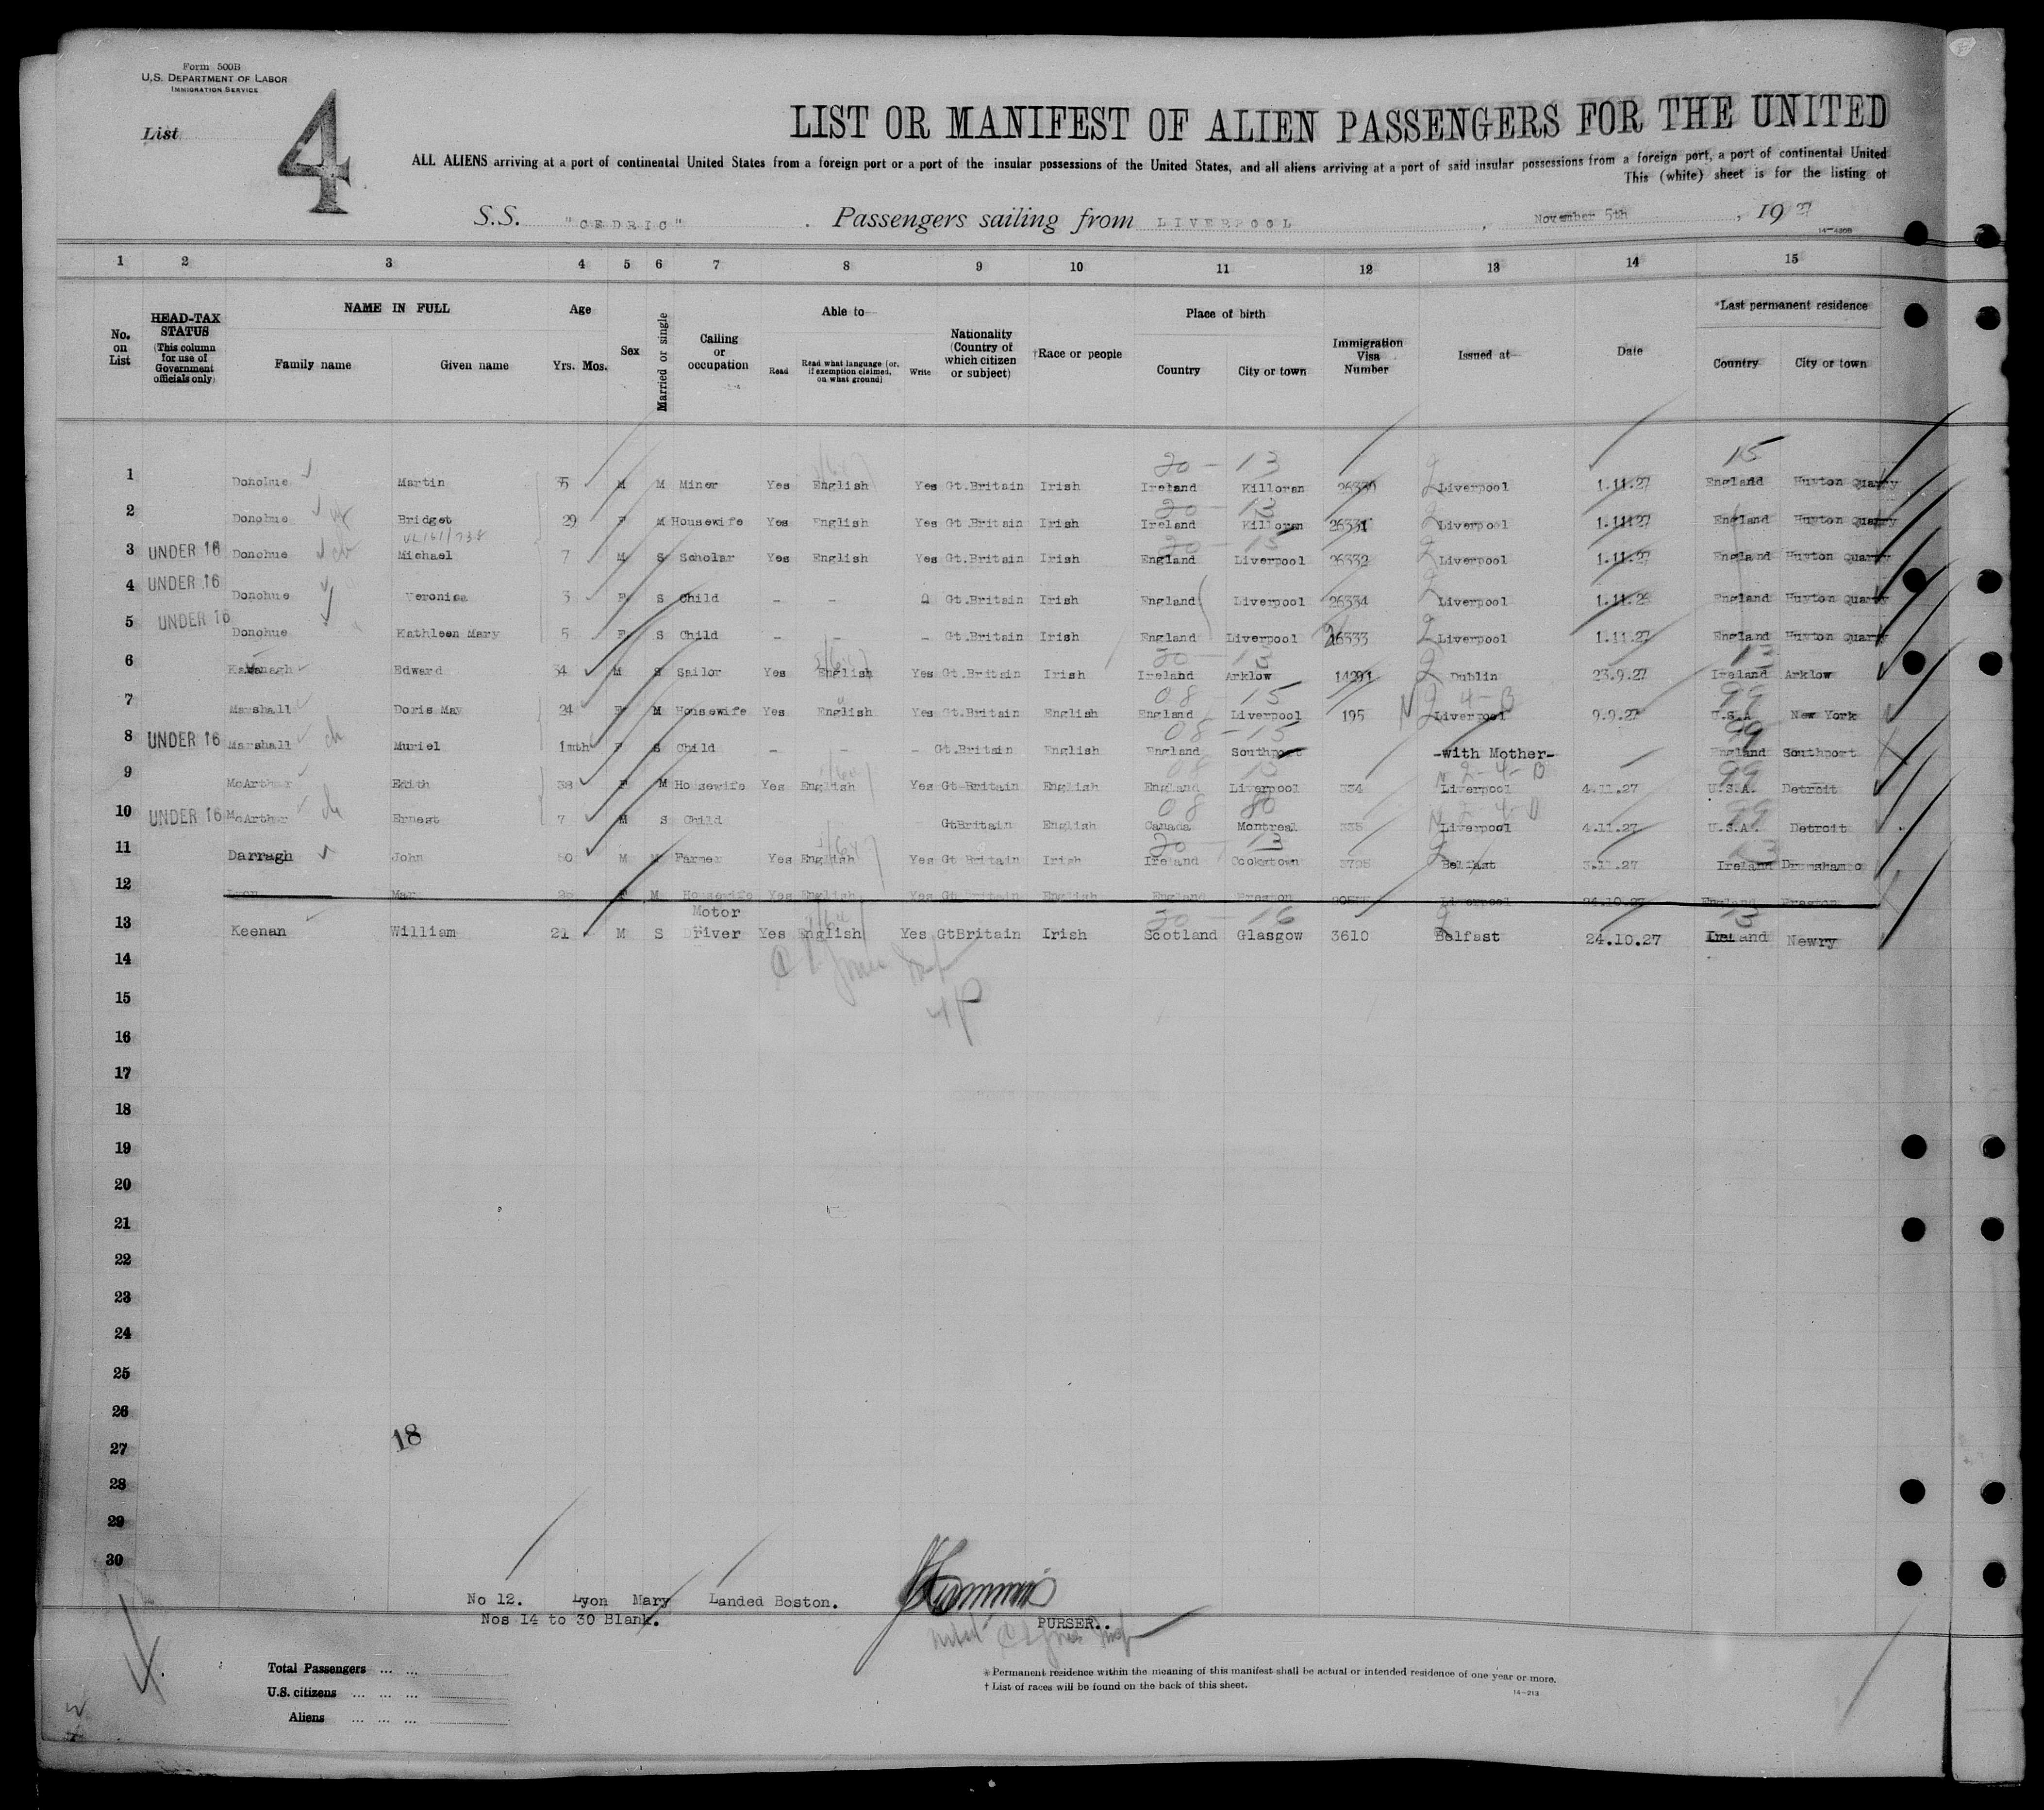 Form 500B
U.S. DEPARTMENT OF LABOR
IMMIGRATION SERVICE
List 4
LIST OR MANIFEST OF ALIEN PASSENGERS FOR THE UNITED
ALL ALIENS arriving at a port of continental United States from a foreign port or a port of the insular possessions of the United States, and all aliens arriving at a port of said insular possessions from a foreign port, a port of continental United
This (white) sheet is for the listing of
S.S. "CEDRIC" . Passengers sailing from LIVERPOOL , November 5th , 1927
14—430B
1 2 3 4 5 6 7 8 9 10 11 12 13 14 15
No. on List
HEAD-TAX STATUS (This column for use of Government officials only)
NAME IN FULL
Family name Given name
Age
Yrs. Mos.
Sex
Married or single
Calling or occupation
Able to—
Read Read what language (or, if exemption claimed, on what ground) Write
Nationality (Country of which citizen or subject)
†Race or people
Place of birth
Country City or town
Immigration Visa Number
Issued at—
Date
*Last permanent residence
Country City or town
20 — 13 15
1 Donohue Martin 35 M M Miner Yes English Yes Gt.Britain Irish Ireland Killoran 26330 Liverpool 1.11.27 England Huyton Quarry
20 — 13
2 Donohue Bridget 29 F M Housewife Yes English Yes Gt.Britain Irish Ireland Killoran 26331 Liverpool 1.11.27 England Huyton Quarry
20 — 15
3 UNDER 16 Donohue Michael 7 M S Scholar Yes English Yes Gt.Britain Irish England Liverpool 26332 Liverpool 1.11.27 England Huyton Quarry
4 UNDER 16 Donohue Veronica 3 F S Child - - Gt.Britain Irish England Liverpool 26334 Liverpool 1.11.2 England Huyton Quarry
5 UNDER 16 Donohue Kathleen Mary 5 F S Child - - - Gt.Britain Irish England Liverpool 26333 Liverpool 1.11.27 England Huyton Quarry
20 — 13 13
6 Kavanagh Edward 34 M S Sailor Yes English Yes Gt.Britain Irish Ireland Arklow 14291 Dublin 23.9.27 Ireland Arklow
08 — 15 N 2 4-B 99
7 Marshall Doris May 24 F M Housewife Yes English Yes Gt.Britain English England Liverpool 195 Liverpool 9.9.27 U.S.A New York
08 — 15 99
8 UNDER 16 Marshall Muriel 1mth F S Child - - - Gt.Britain English England Southport -with Mother- England Southport
08 15 N 2-4-B 99
9 McArthur Edith 38 F M Housewife Yes English Yes Gt.Britain English England Liverpool 334 Liverpool 4.11.27 U.S.A. Detroit
08 80 N 2-4-B 99
10 UNDER 16 McArthur Ernest 7 M S Child GtBritain English Canada Montreal 335 Liverpool 4.11.27 U.S.A. Detroit
20 — 13 13
11 Darragh John 50 M M Farmer Yes English Yes Gt Britain Irish Ireland Cookstown Belfast Ireland
12 Lyon Mar F M Housewife Yes English Yes Gt Britain English England Preston Liverpool 24.10.27 England Preston
20 — 16 13
13 Keenan William 21 M S Motor Driver Yes English Yes GtBritain Irish Scotland Glasgow 3610 Belfast 24.10.27 Ireland Newry
14
15
16
17
18
19
20
21
22
23
24
25
26
27
18
28
29
30
No 12. Lyon Mary Landed Boston.
Nos 14 to 30 Blank.
PURSER..
Total Passengers ... ...
U.S. citizens ... ... ...
Aliens ... ... ...
* Permanent residence within the meaning of this manifest shall be actual or intended residence of one year or more.
† List of races will be found on the back of this sheet.
14—213